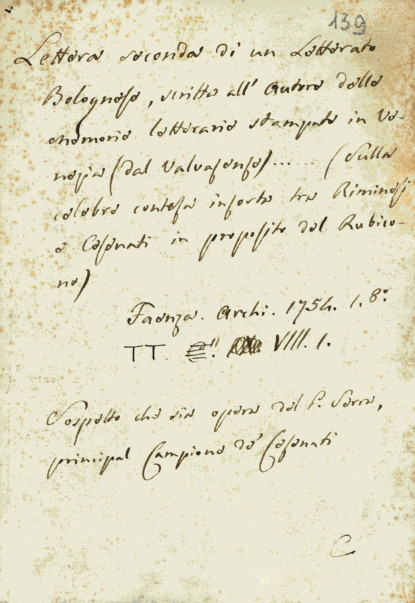 139
Lettera seconda di un Letterato
Bolognese, scritta all' Autore delle
memorie letterarie stampate in Ve-
nezia (dal Valvasense)...... (Sulla
celebre contesa insorta tra Riminesi
e Cesenati in proposito del Rubico-
ne)
Faenza. Archi. 1754. 1. 8°.
TT. VIII. 1.
Sospetto che sia opera del P. Serra,
principal Campione de' Cesenati
C